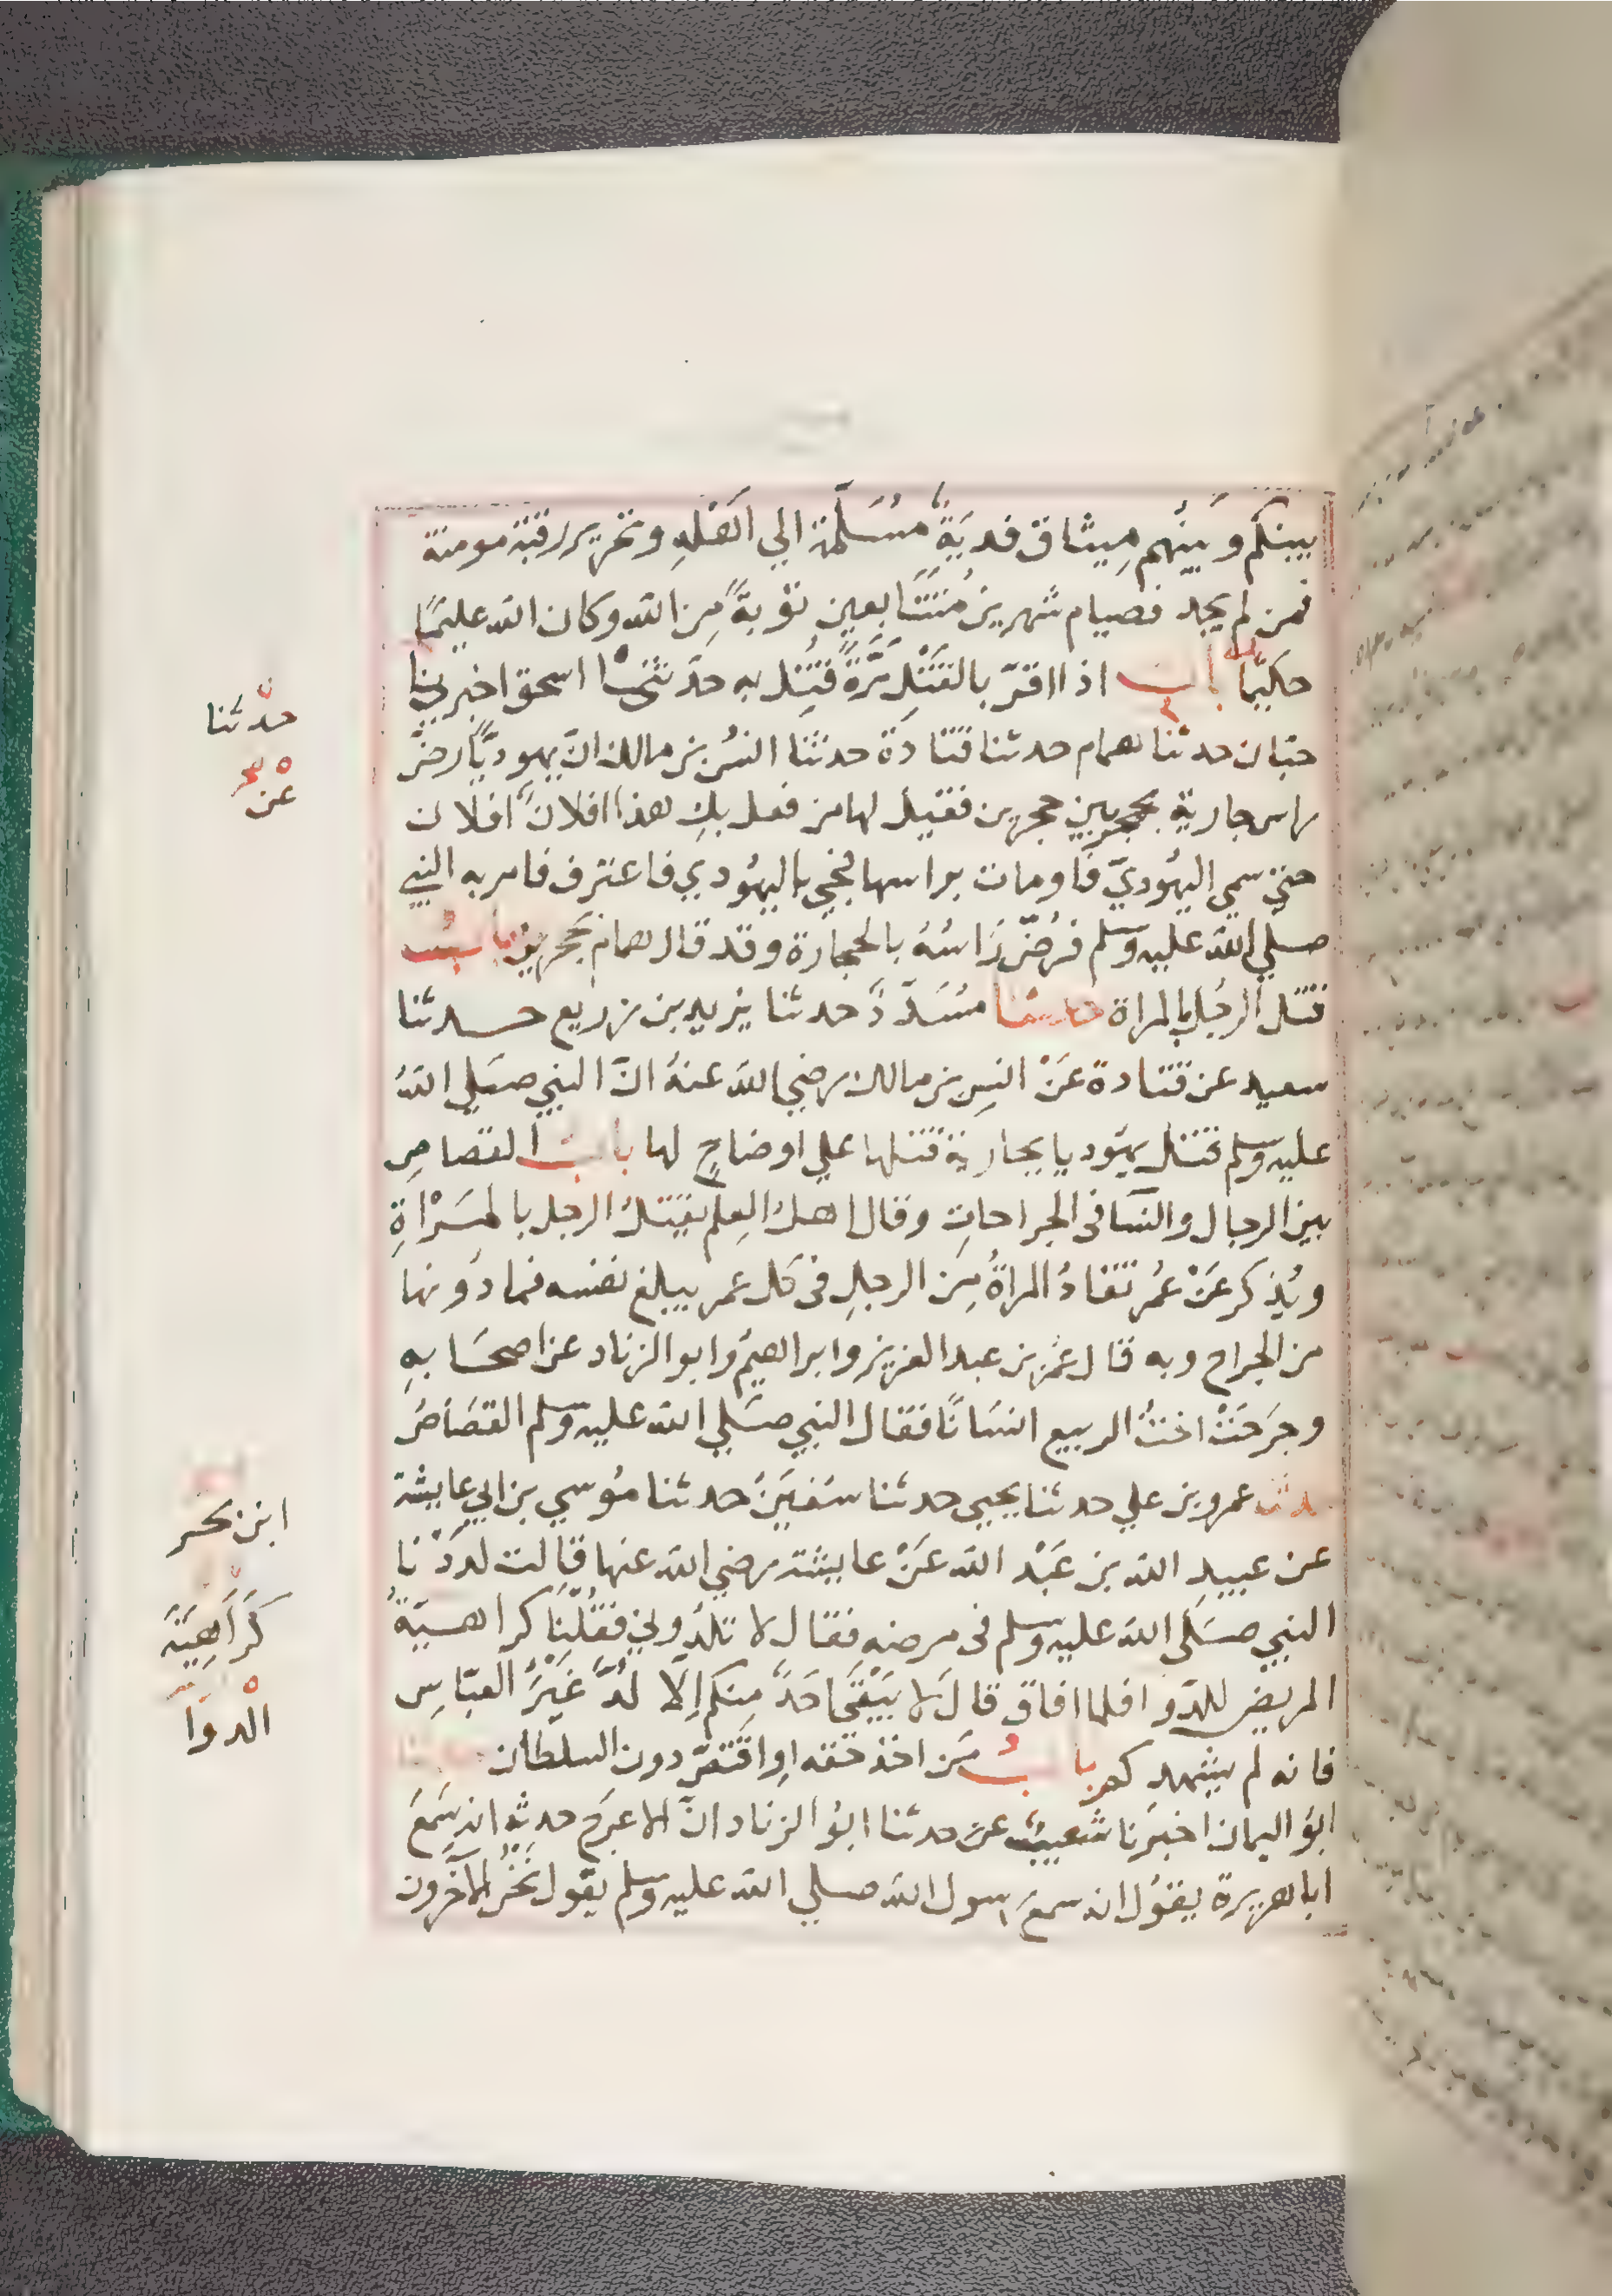 بينكم وبينهم مِيثاق فديَةٌ مُسَلَّمة الي اَهْلِهِ وتحرير رقبة مومنة
فمن لم يجد فصيام شهرين مُتَتَابعين توبةً مِن الله وكان الله عليمًا
حكيمًا باب اذا اقرّ بالقَتْلِ مَرَّةً قُتِل به حدَّثني اسحق اخبرنا
حبّان حدثنا همام حدثنا قتادَة حدثنا انسُ بن مالك انّ يهوديًّا رضَّ
راس جارية بين حجرين فقيل لها من فعل بكِ هذا افلانٌ افلان
حتي سمي اليهُوديّ فاومات براسها فجي باليهُودي فاعترف فامر به النبي
صلي الله عليه وسلم فرُضّ رَاسُهُ بالحجارة وقد قال همام بحَجَرين باب
قتل الرجُل بالمراة حدثنا مُسَدَّدٌ حدثنا يزيد بن زريع حدثنا
سعيد عن قتادة عَنْ انسِ بن مالك رضي الله عنهُ انّ النبي صلي اللهُ
عليه وسلم قتل يهُوديا بجارية قتلها علي اوضاحٍ لها باب القصاصِ
بين الرجال والنسا في الجراحاتِ وقال اهلُ العِلم يقتلُ الرجل بالمَرْاةِ
ويُذكر عَنْ عُمر تقادُ المراةُ مِن الرجلِ في كل عمد يبلغ نفسه فما دُونها
من الجراح وبه قال عُمَر بن عبد العزيز وابراهيمُ وابو الزناد عن اصحَابهِ
وجرَحَتْ اختُ الربيع انسَانًا فقال النبي صلي الله عليه وسلم القصَاصُ
حدثنا عمرو بن علي حدثنا يحيي حدثنا سُفيَنُ حدثنا مُوسي بن ابي عايشة
عن عبيدِ الله بن عَبْد الله عَنْ عايشة رضي الله عنها قالت لدَدْنا
النبي صلي الله عليه وسلم في مرضه فقال لا تلدُّوني فقُلْنا كراهيةُ
المريض للدوا فلما افاق قالَ لا يَبْقَى احَدٌ مِنكم اِلا لُدَّ غَيْرَ العبّاسِ
فانه لم يشهدكم بابُ مَن اخذ حقه اوِ اقتصّ دون السلطان حدثنا
ابوُ اليمان اخبَرنا شعيبٌ عن حدثنا ابوُ الزناد انّ الاعرَج حدثه انه سَمعَ
ابا هريرة يقوُل انه سمعَ رسول الله صلي الله عليه وسلم يقول نَحْنُ الآخرون
حدّثنا
عن
ابن بحر
كَرَاهِيَةَ
الْدوَآ